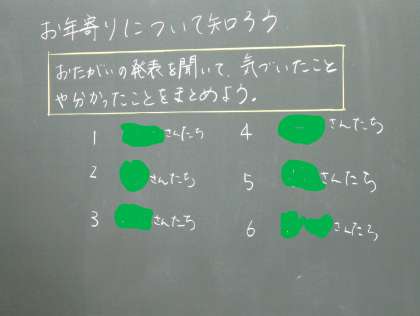 お年寄りについて知ろう
おたがいの発表を聞いて、気づいたこと
や分かったことをまとめよう。
1 さんたち
2 さんたち
3 さんたち
4 さんたち
5 さんたち
6 さんたち